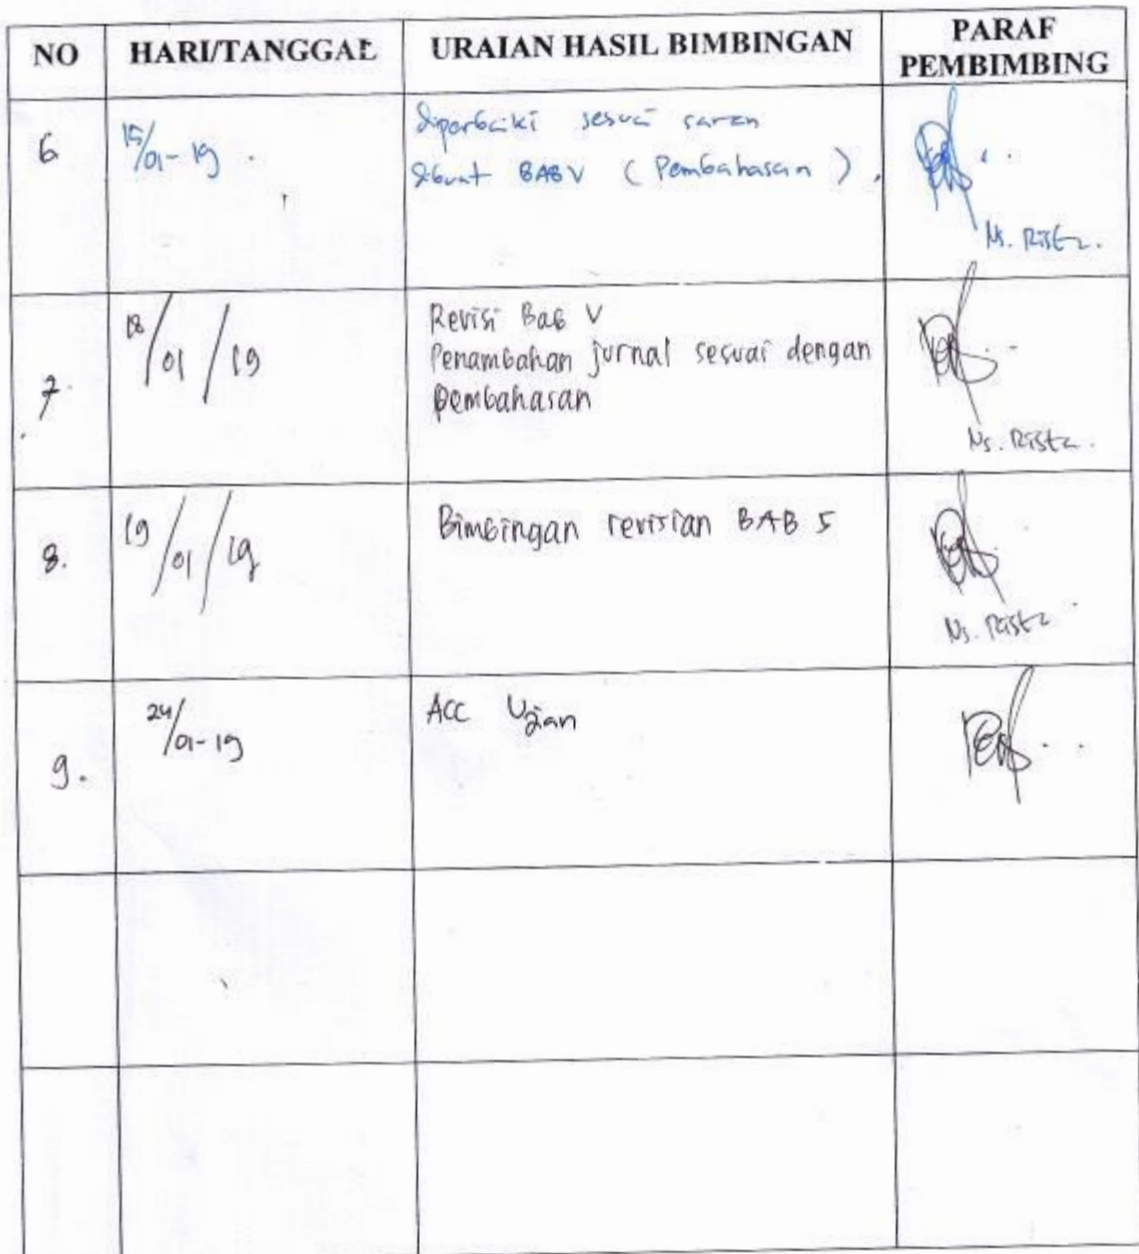 NO HARI/TANGGAL URAIAN HASIL BIMBINGAN PARAF PEMBIMBING
6 15/01-19 diperbaiki sesuai saran
dibuat BAB V (Pembahasan)
Ns. Rista.
7. 18/01/19 Revisi Bab V
Penambahan jurnal sesuai dengan
pembahasan
Ns. Rista.
8. 19/01/19 Bimbingan revisian BAB 5
Ns. Rista
9. 24/01-19 ACC Ujian